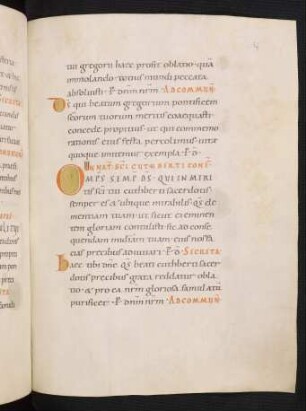 tui gregorii haec prosit oblatio · quā
immolando totius mundi peccata
absoluisti · P dnm nrm · AD COMMUÑ
Ds qui beatum gregorium pontificem
scorum tuorum meritis coaequasti ·
concede propitius · ut qui commemo
rationis eius festa percolimus · uitae
quoque imitemur exempla · P D
IN NAT SCI CUTHBERTI CONF
OMPS SEMP DS QUI IN MERI
tis sci tui cuthberti sacerdotis
semper es et ubique mirabilis · qs cle
mentiam tuam · ut sicut ei eminen
tem gloriam contulisti · sic ad conse
quendam miām tuam · eius nos fa
cias precibus adiuuari · P D SECRETA
haec tibi dne qs beati cuthberti sacer
dotis precibus grata reddatur obla
tio · &
purificet · P dnm nrm · AD COMMUÑ